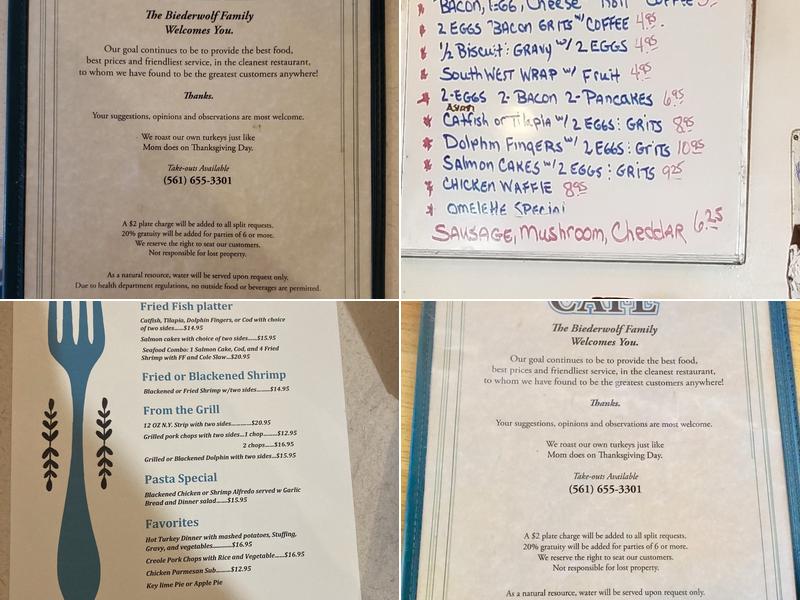 The Biederwolf Family
Welcomes You.
Our goal continues to be to provide the best food,
best prices and friendliest service, in the cleanest restaurant,
to whom we have found to be the greatest customers anywhere!
Thanks.
Your suggestions, opinions and observations are most welcome.
We roast our own turkeys just like
Mom does on Thanksgiving Day.
Take-outs Available
(561) 655-3301
A $2 plate charge will be added to all split requests.
20% gratuity will be added for parties of 6 or more.
We reserve the right to seat our customers.
Not responsible for lost property.
As a natural resource, water will be served upon request only.
Due to health department regulations, no outside food or beverages are permitted.
BACON, EGG, Cheese Roll COFFEE
2 EGGS BACON GRITS w/ COFFEE 4.95
1/2 Biscuit: GRAVY w/ 2 EGGS 4.95
SouthWEST WRAP w/ Fruit 4.95
2-EGGS 2-BACON 2-PANCAKES 6.95
ASIAN
Catfish or Tilapia w/ 2 EGGS: GRITS 8.95
Dolphin FingERS w/ 2 EGGS: GritS 10.95
SALMON CAKES w/ 2 EGGS: GRITS 9.25
CHICKEN WAFFLE 8.95
OMELETTE SPECIAL
SAUSAGE, Mushroom, Cheddar 6.25
Fried Fish platter
Catfish, Tilapia, Dolphin Fingers, or Cod with choice
of two sides.....$14.95
Salmon cakes with choice of two sides.....$15.95
Seafood Combo: 1 Salmon Cake, Cod, and 4 Fried
Shrimp with FF and Cole Slaw...$20.95
Fried or Blackened Shrimp
Blackened or Fried Shrimp w/two sides.........$14.95
From the Grill
12 OZ N.Y. Strip with two sides..............$20.95
Grilled pork chops with two sides...1 chop..........$12.95
2 chops.....$16.95
Grilled or Blackened Dolphin with two sides...$15.95
Pasta Special
Blackened Chicken or Shrimp Alfredo served w Garlic
Bread and Dinner salad.......$15.95
Favorites
Hot Turkey Dinner with mashed potatoes, Stuffing,
Gravy, and vegetables..........$16.95
Creole Pork Chops with Rice and Vegetable.....$16.95
Chicken Parmesan Sub........$12.95
Key lime Pie or Apple Pie
CAFE
The Biederwolf Family
Welcomes You.
Our goal continues to be to provide the best food,
best prices and friendliest service, in the cleanest restaurant,
to whom we have found to be the greatest customers anywhere!
Thanks.
Your suggestions, opinions and observations are most welcome.
We roast our own turkeys just like
Mom does on Thanksgiving Day.
Take-outs Available
(561) 655-3301
A $2 plate charge will be added to all split requests.
20% gratuity will be added for parties of 6 or more.
We reserve the right to seat our customers.
Not responsible for lost property.
As a natural resource, water will be served upon request only.